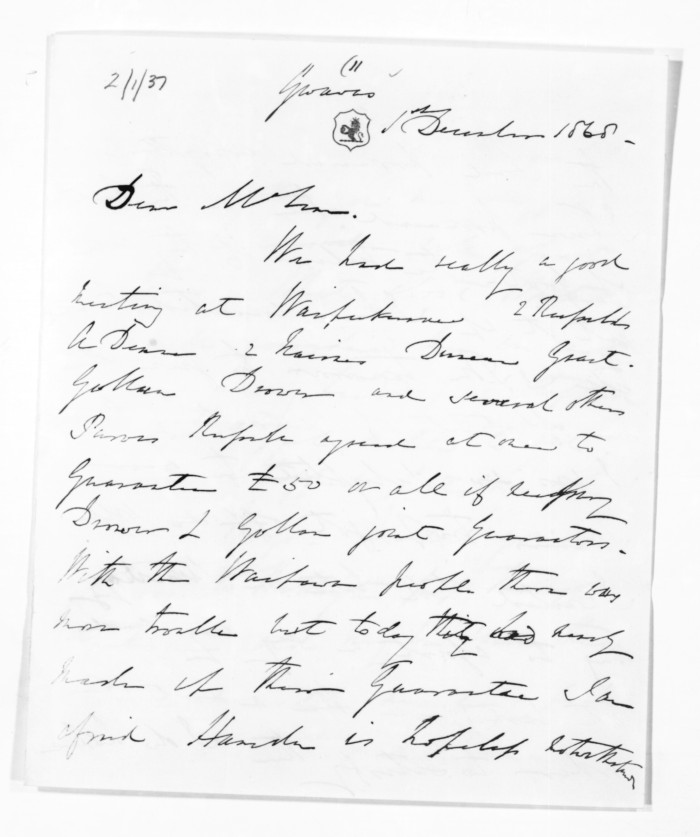 2/1/37
(11
Gwavas
1st December 1868 -
Dear McLean.
We had really a good
meeting at Waipukurau 2 Russells
A Deane 2 Nairns Duncan Grant.
Gollan Drower and several others
Purvis Russell agreed at once to
Guarantee £50 or all if necessary
Drower & Gollan joint Guarantors.
With the Waipawa people there was
more trouble but today they had nearly
made up their Guarantee I am
afraid is hopeless